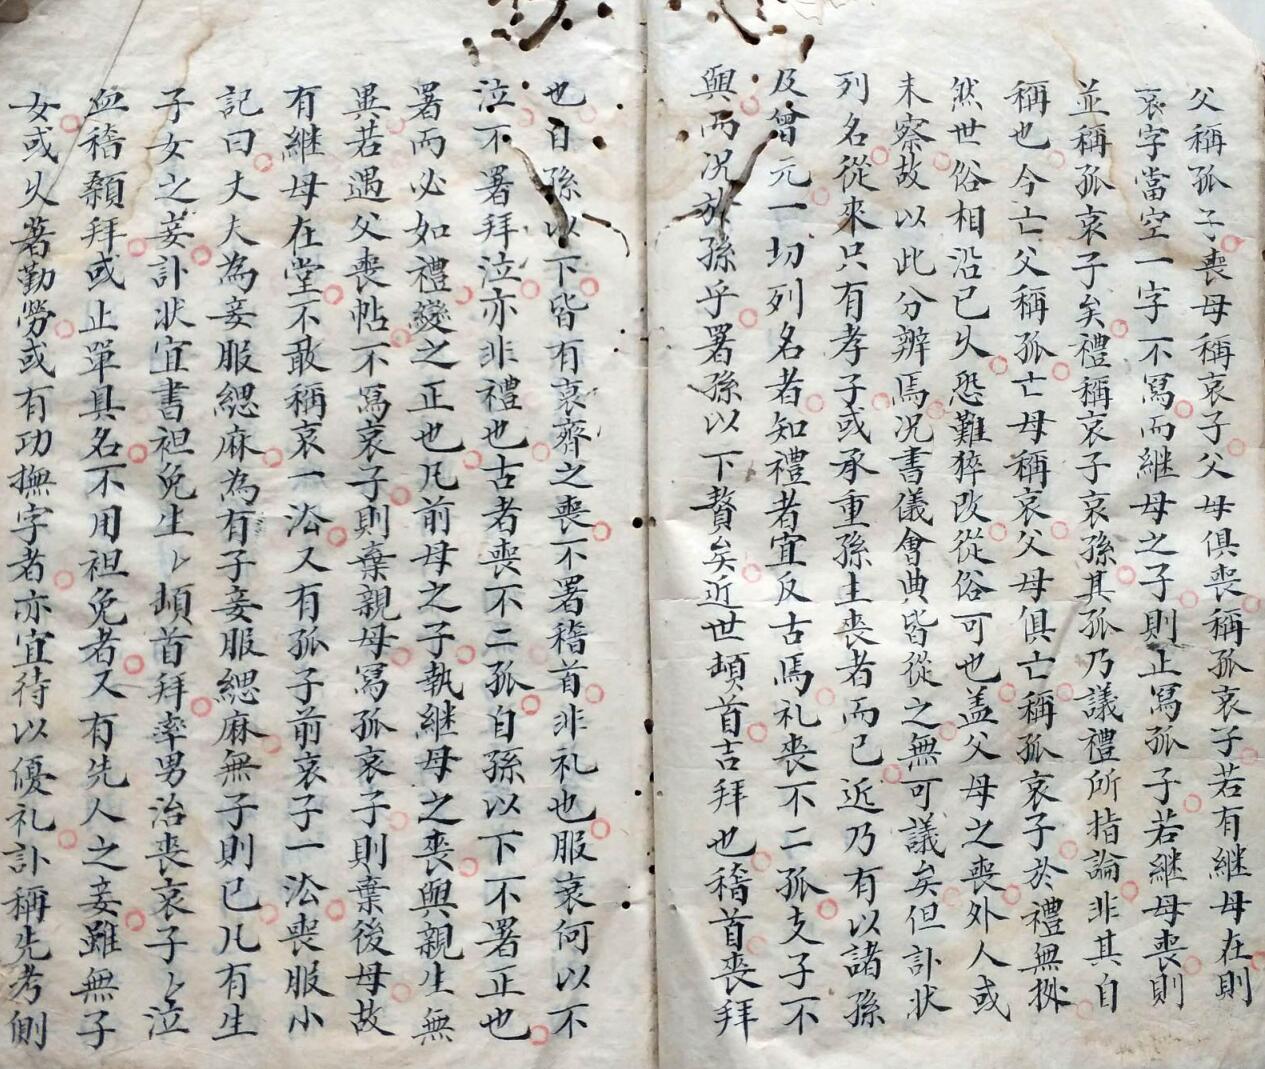 父稱孤子喪母稱哀子父母俱喪稱孤哀子若有継母在則
哀字當空一字不寫而継母之子則止寫孤子若継母喪則
並稱孤哀子矣禮稱哀子哀孫其孤乃議禮所指論非其自
稱也今亡父稱孤亡母稱哀父母俱亡稱孤哀子於禮無㨿
然世俗相沿已乆恐難猝改從俗可也盖父母之喪外人或
未察故以此分辨焉况書儀會典皆從之無可議矣但訃狀
列名從來只有孝子或承重孫主喪者而已近乃有以諸孫
及曾元一切列名者知禮者宜反古焉礼喪不二孤支子不
與而况於孫乎署孫以下贅矣近世頓首吉拜也稽首喪拜
也自孫以下皆有衰齊之喪不署稽首非礼也服衰何以不
泣不署拜泣亦非禮也古者喪不二孤自孫以下不署正也
署而必如禮變之正也凡前母之子執継母之喪與親生無
異若遇父喪帖不寫哀子則棄親母寫孤哀子則棄後母故
有継母在堂不敢稱哀一法又有孤子前哀子一法喪服小
記曰大夫為妾服緦麻為有子妾服緦麻無子則已凡有生
子女之妾訃狀宜書袒免生〻頓首拜率男治喪哀子〻泣
血稽顙拜或止單具名不用袒免者又有先人之妾雖無子
女或乆著勤勞或有功撫字者亦宜待以優礼訃稱先考側